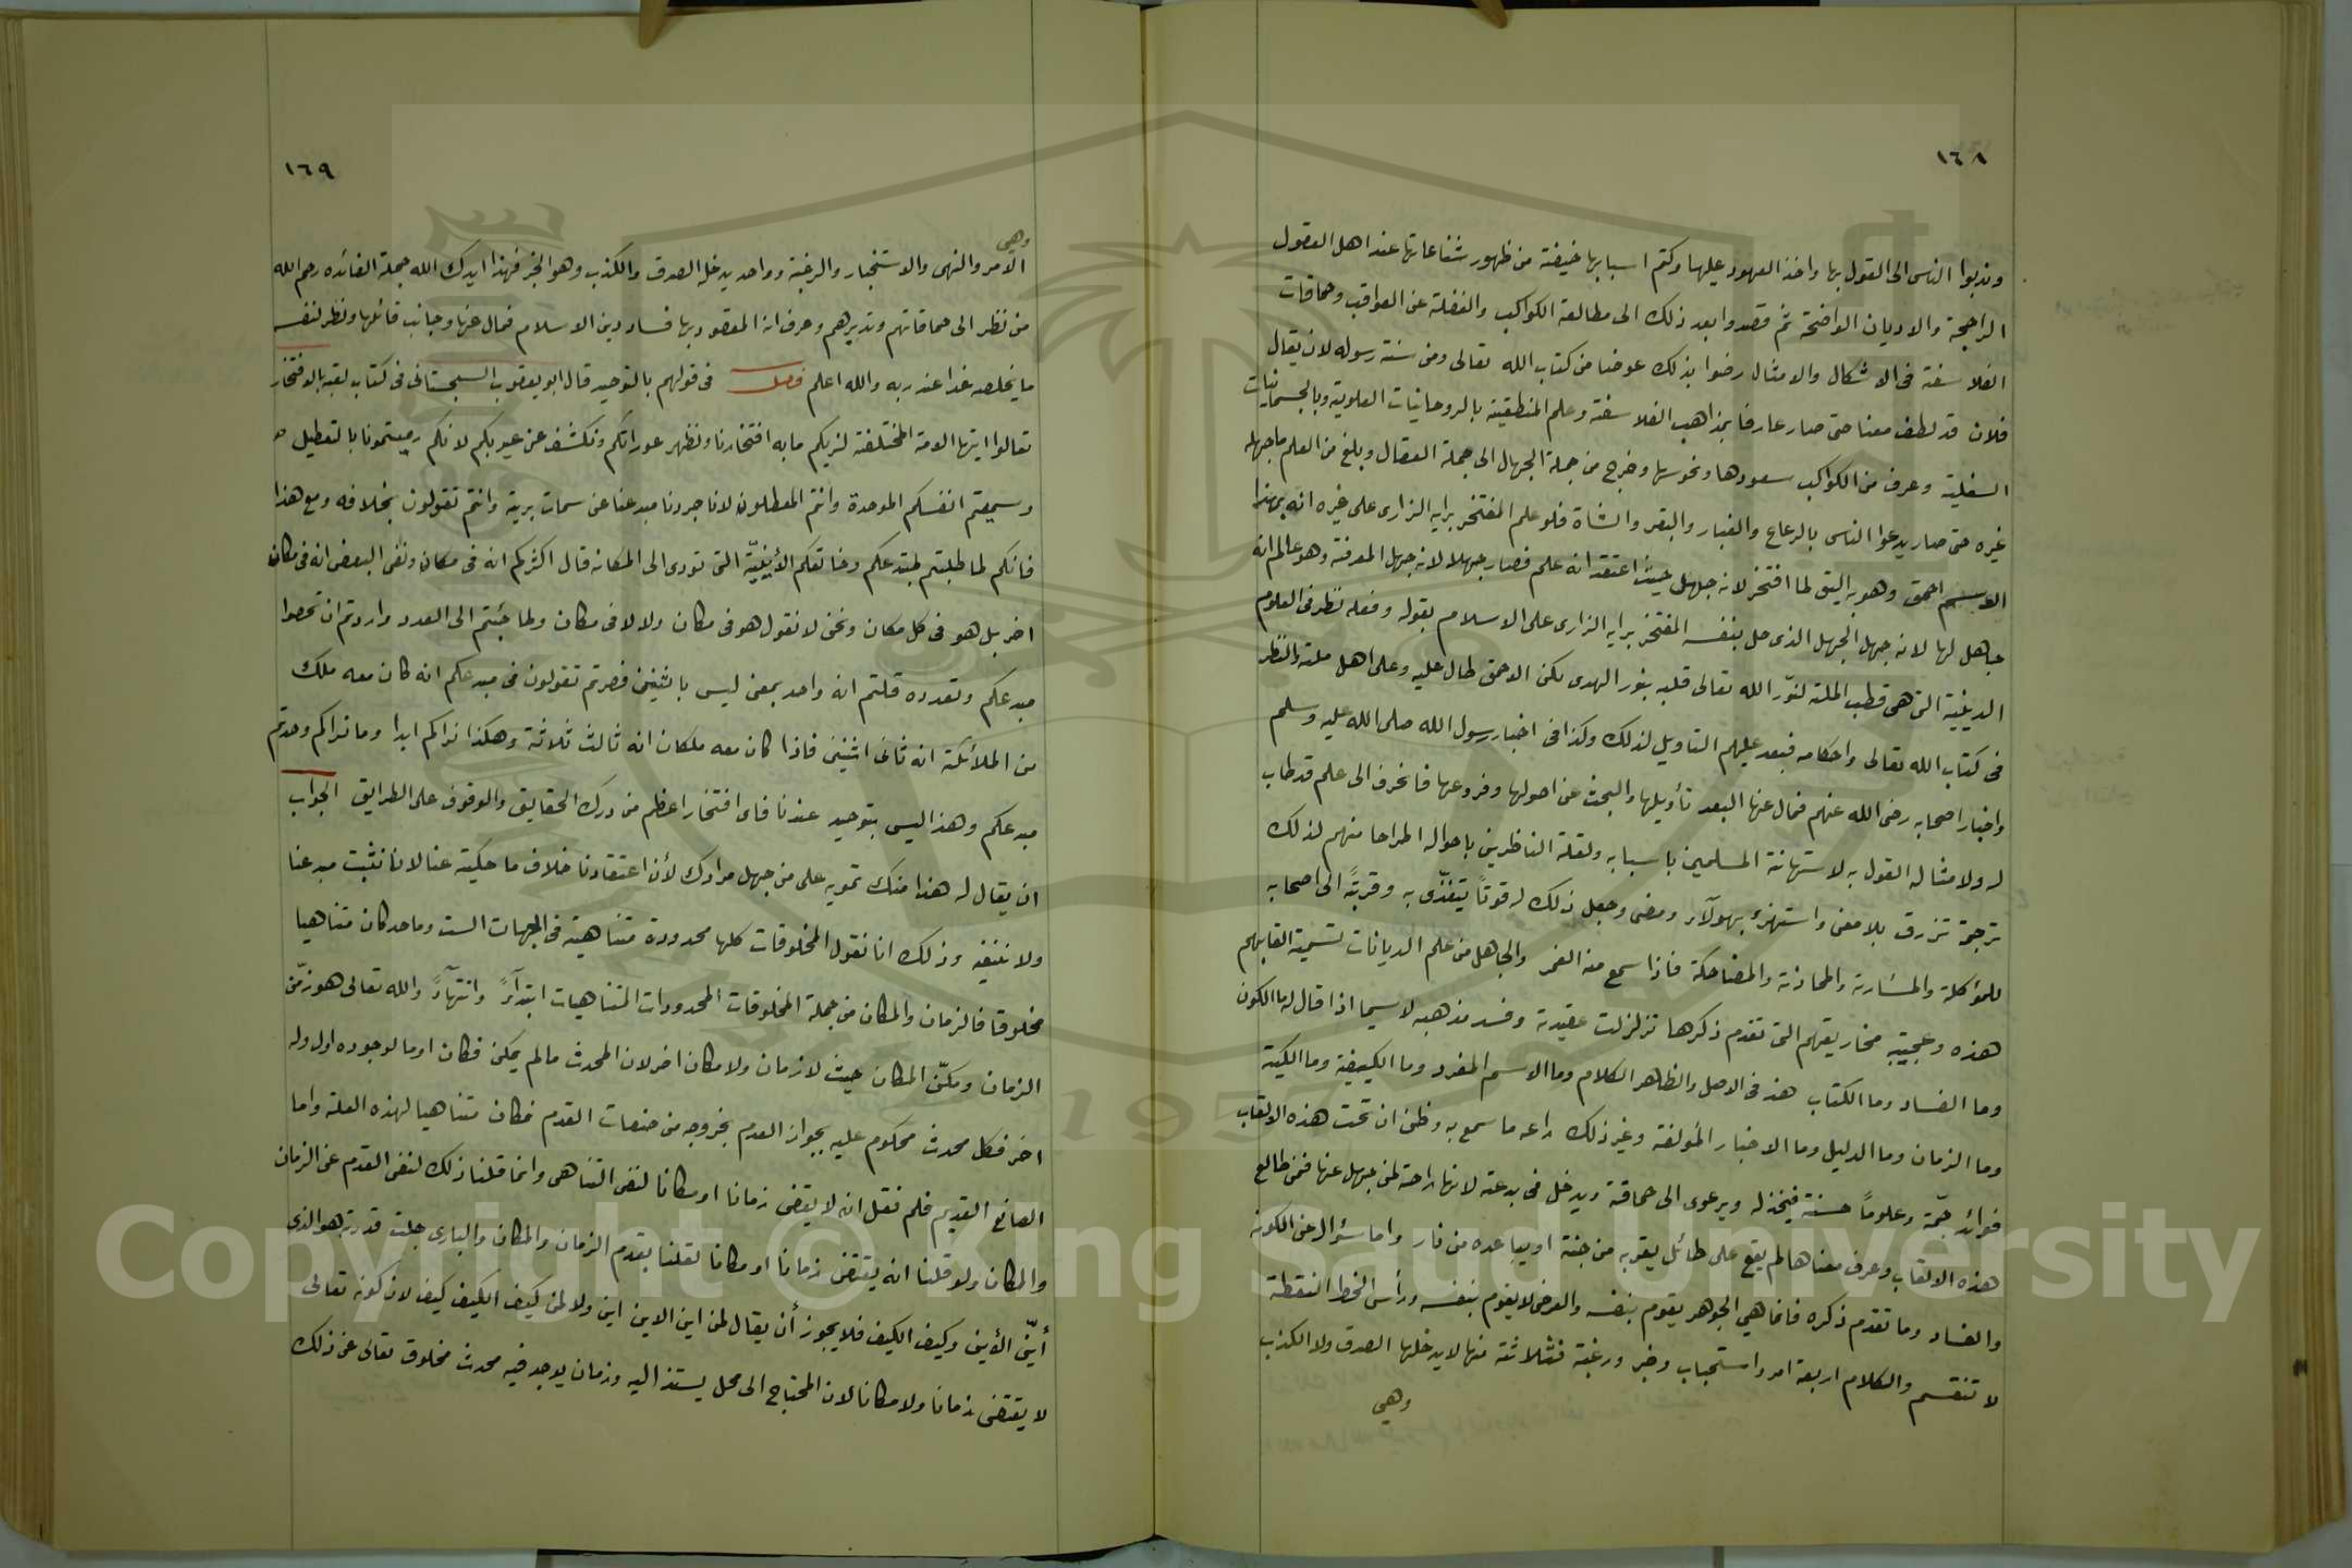 ١٦٨
وندبوا الناس الى القول بها واخذ العهود عليها وكتم اسبابها خيفة من ظهور شناعاتها عند اهل العقول
الراجحة والاديان الواضحة ثم قصدوا بعد ذلك الى مطالعة الكواكب والغفلة عن العواقب وحماقات
الفلاسفة فى الاشكال والامثال رضوا بذلك عوضا من كتاب الله تعالى ومن سنة رسوله لان يقال
فلان قد لطف معنا حتى صار عارفا بمذاهب الفلاسفة وعلم المنطقية بالروحانيات العلوية وبالجسمانيات
السفلية وعرف من الكواكب سعودها ونحوسها وخرج من جملة الجهال الى جملة العقال وبلغ من العلم ما جهله
غيره حتى صار يدعوا الناس بالرعاع والغبار والبقر والشاة فلو علم المفتخر برايه الزارى على غيره انه بهذا
الاسم احمق وهو به اليق لما افتخر لانه جاهل حيث اعتقد انه علم فصار جهلا لانه جهل المعرفة وهو عالم انه
جاهل لها لانه جهل الجهل الذى حل بنفسه المفتخر برايه الزارى على الاسلام بقوله وفعله نظر فى العلوم
الدينية التى هى قطب الملة لنوّر الله تعالى قلبه بنور الهدى لكن الاحمق طال عليه وعلى اهل ملته والنظر
فى كتاب الله تعالى واحكامه فبعد عليهم التاويل لذلك وكذا فى اخبار رسول الله صلى الله عليه وسلم
واخبار اصحابه رضى الله عنهم فمال عنها البعد تأويلها والبحث عن اصولها وفروعها فانحرف الى علم قد طاب
له ولامثاله القول به لاستهانة المسلمين باسبابه ولقلة الناظرين باحواله اطراحا منهم لذلك
ترجمة تزرق بلا معنى واستهزء بهولآء ومضى وجعل ذلك له قوتاً يتغذّى به وقربةً الى اصحابه
للمؤكلة والمشاربة والمحاذثة والمضاحكة فاذا سمع منه الغمر والجاهل من علم الديانات لتسمية القابهم
هذه وعجيبة مخاريقهم التى تقدم ذكرها تزلزلت عقيدته وفسد مذهبه لاسيما اذا قال له ما الكون
وما الفساد وما الكتاب هذ فى الاصل والظاهر الكلام وما الاسم المفرد وما الكيفية وما الكمية
وما الزمان وما الدليل وما الاخبار المولفة وغير ذلك راعه ما سمع به وظن ان تحت هذه الالقاب
فوائد جمّة وعلوماً حسنة فيخذله ويرعوى الى حماقته ويدخل فى بدعته لانها راحة لمن جهل عنها فمن طالع
هذه الالقاب وعرف معناها لم يقع على طائل يقربه من جنة او يباعده من نار واما سؤال عن الكون
والفساد وما تقدم ذكره فانما هي الجوهر يقوم بنفسه والعرض لا يقوم بنفسه ورأس الخط النقطة
لا تنقسم والكلام اربعة امر واستجباب وخبر ورغبة فثلاثة منها لا يدخلها الصدق ولا الكذب
وهى
١٦٩
وهى
الامر والنهى والاستخبار والرغبة وواحد يدخله الصدق والكذب وهو الخبر فهذا ايدك الله جملة الفائده رحم الله
من نظر الى حماقاتهم وتدبرهم وعرف ان المقصود بها فساد دين الاسلام فمال عنها وجانب قائلها ونظر لنفسه
ما يخلصه غدا عند ربه والله اعلم فصل فى قولهم بالتوحيد قال ابو يعقوب السجستانى فى كتاب لقبه بالافتخار
تعالوا ايتها الامة المختلفة لنريكم ما به افتخارنا ونظهر عوراتكم ونكشف عن عيوبكم لانكم رميتمونا بالتعطيل
وسميتم انفسكم الموحدة وانتم المعطلون لانا جردنا مبدعنا عن سمات بريته وانتم تقولون بخلافه ومع هذا
فانكم لما طلبتم لمبتدعكم وخالقكم الأينيّة التى تودى الى المكانه قال اكثركم انه فى مكان ونفى البعض انه فى مكان
اخر بل هو فى كل مكان ونحن لا نقول هو فى مكان ولا لا فى مكان ولما جئتم الى العدد واردتم ان تحصوا
مبدعكم وتعدده قلتم انه واحد بمعنى ليس باثنين فصرتم تقولون فى مبدعكم انه كان معه ملك
من الملائكة انه ثانى اثنين فاذا كان معه ملكان انه ثالث ثلاثة وهكذا نراكم ابدا وما نراكم وحدتم
مبدعكم وهذا ليس بتوحيد عندنا فاى افتخار اعظم من درك الحقايق والوقوف على الطرايق الجواب
ان يقال له هذا منك تمويه على من جهل مرادك لأن اعتقادنا خلاف ما حكيته عنا لانا نثبت مبدعنا
ولا ننفيه وذلك انا نقول المخلوقات كلها محدودة متناهية فى الجهات الست وما حد كان متناهيا
مخلوقا فالزمان والمكان من جملة المخلوقات المحدودات المتناهيات ابتدآءً وانتهآءً والله تعالى هو زمّن
الزمان ومكّن المكان حيث لا زمان ولا مكان اخر لان المحدث ما لم يكن فكان او ما لوجوده اول وله
اخر فكل محدث محكوم عليه بجواز العدم بخروجه من صفات القدم فكان متناهيا لهذه العلة واما
الصانع القديم فلم نقل انه لا يقتضى زمانا او مكانا لنفى التناهى وانما قلنا ذلك لنفى القدم عن الزمان
والمكان ولو قلنا انه يقتضى زمانا او مكانا لقلنا بقدم الزمان والمكان والبارى جلت قدرته هو الذى
أيّن الأين وكيف الكيف فلا يجوز أن يقال لمن اين الاين اين ولا لمن كيف الكيف كيف لان كونه تعالى
لا يقتضى زمانا ولا مكانا لان المحتاج الى محل يستند اليه وزمان يوجد فيه محدث مخلوق تعالى عن ذلك